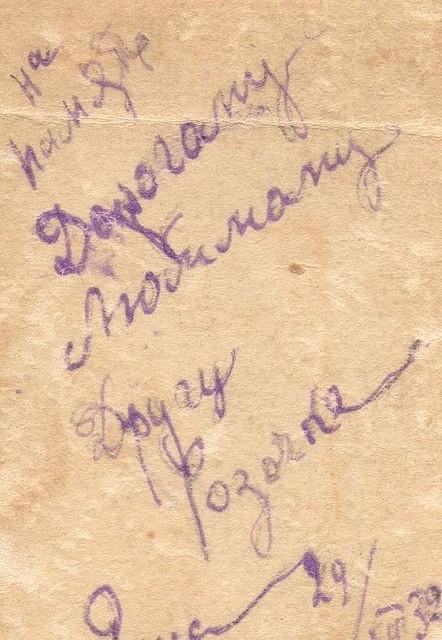 на
память
Дорогаму
Любимаму
Другу
Розочке
29/VIII 39